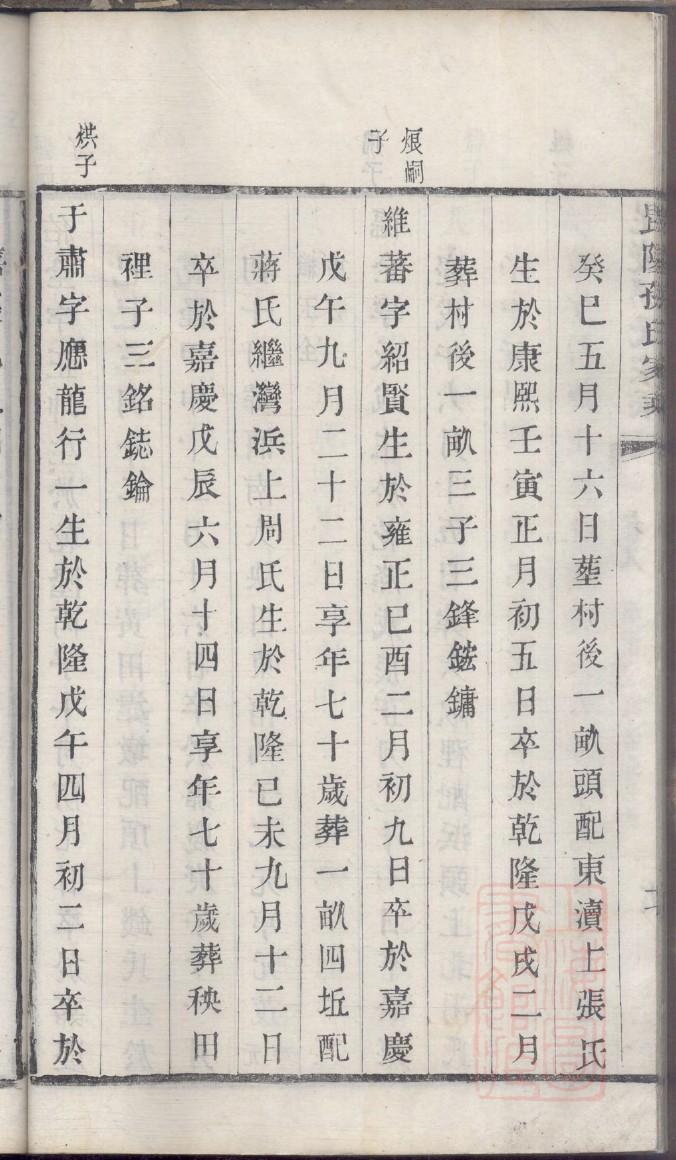 毘陵孫氏家乘
癸巳五月十六日塟村後一畝頭配東瀆上張氏
生於康熙壬寅正月初五日卒於乾隆戊戌二月
葬村後一畝三子三鋒鍙鏞
烺嗣子
維蕃字紹賢生於雍正已酉二月初九日卒於嘉慶
戊午九月二十二日享年七十歲葬一畝四坵配
蔣氏繼灣浜上周氏生於乾隆已未九月十二日
卒於嘉慶戊辰六月十四日享年七十歲葬秧田
裡子三銘鋕鑰
烘子
于肅字應龍行一生於乾隆戊午四月初三日卒於